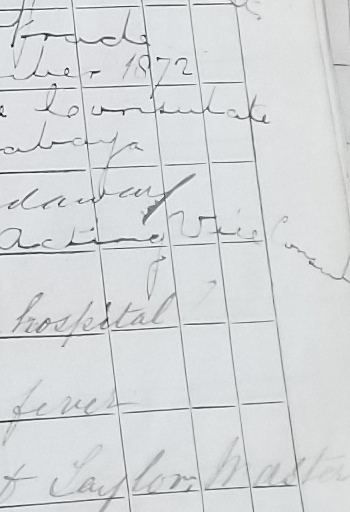 Trade
ber 1872
e Consulate
abaya
daway
Acting Vice Consul
hospital
fever
t Taylor, Master